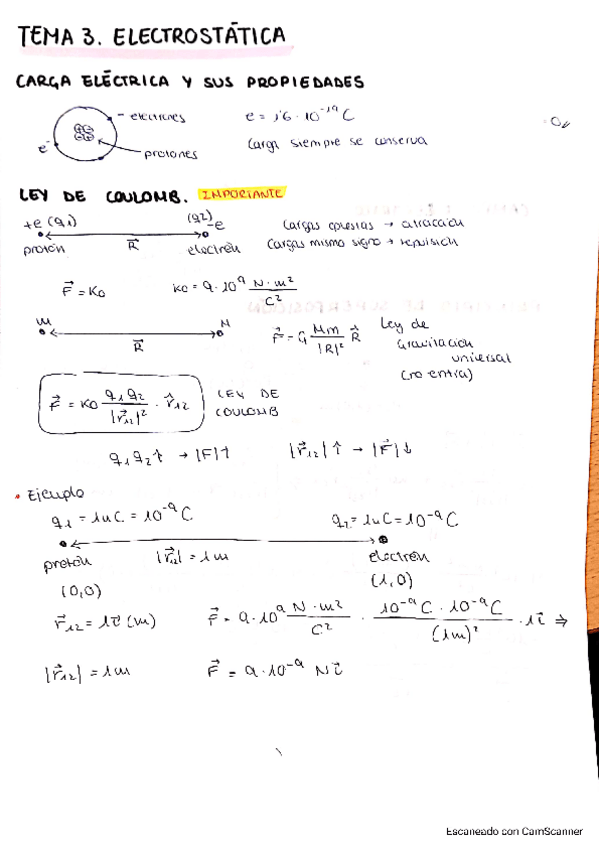 TEMA 3. ELECTROSTÁTICA
CARGA ELÉCTRICA Y SUS PROPIEDADES
electrones
e = 1'6 · 10⁻¹⁹ C
e⁻
protones
Carga siempre se conserva
LEY DE COULOMB. IMPORTANTE
+e (q1) (q2) -e
Cargas opuestas → atracción
protón R⃗ electrón
Cargas mismo signo → repulsión
F⃗ = K0 K0 = 9 · 10⁹ N · m² / C²
M R⃗ m
F⃗ = G Mm / |R|² R⃗
Ley de
Gravitación
universal
(no entra)
F⃗ = K0 q1 q2 / |r⃗12|² · r̂12
LEY DE
COULOMB
q1 q2 ↑ → |F| ↑ |r⃗12| ↑ → |F⃗| ↓
• Ejemplo
q1 = 1nC = 10⁻⁹ C q2 = 1nC = 10⁻⁹ C
protón |r⃗12| = 1m electrón
(0,0) (1,0)
r⃗12 = 1i⃗ (m) F⃗ = 9 · 10⁹ N · m² / C² · 10⁻⁹ C · 10⁻⁹ C / (1m)² · 1i⃗ ⇒
|r⃗12| = 1m F⃗ = 9 · 10⁻⁹ N i⃗
Escaneado con CamScanner